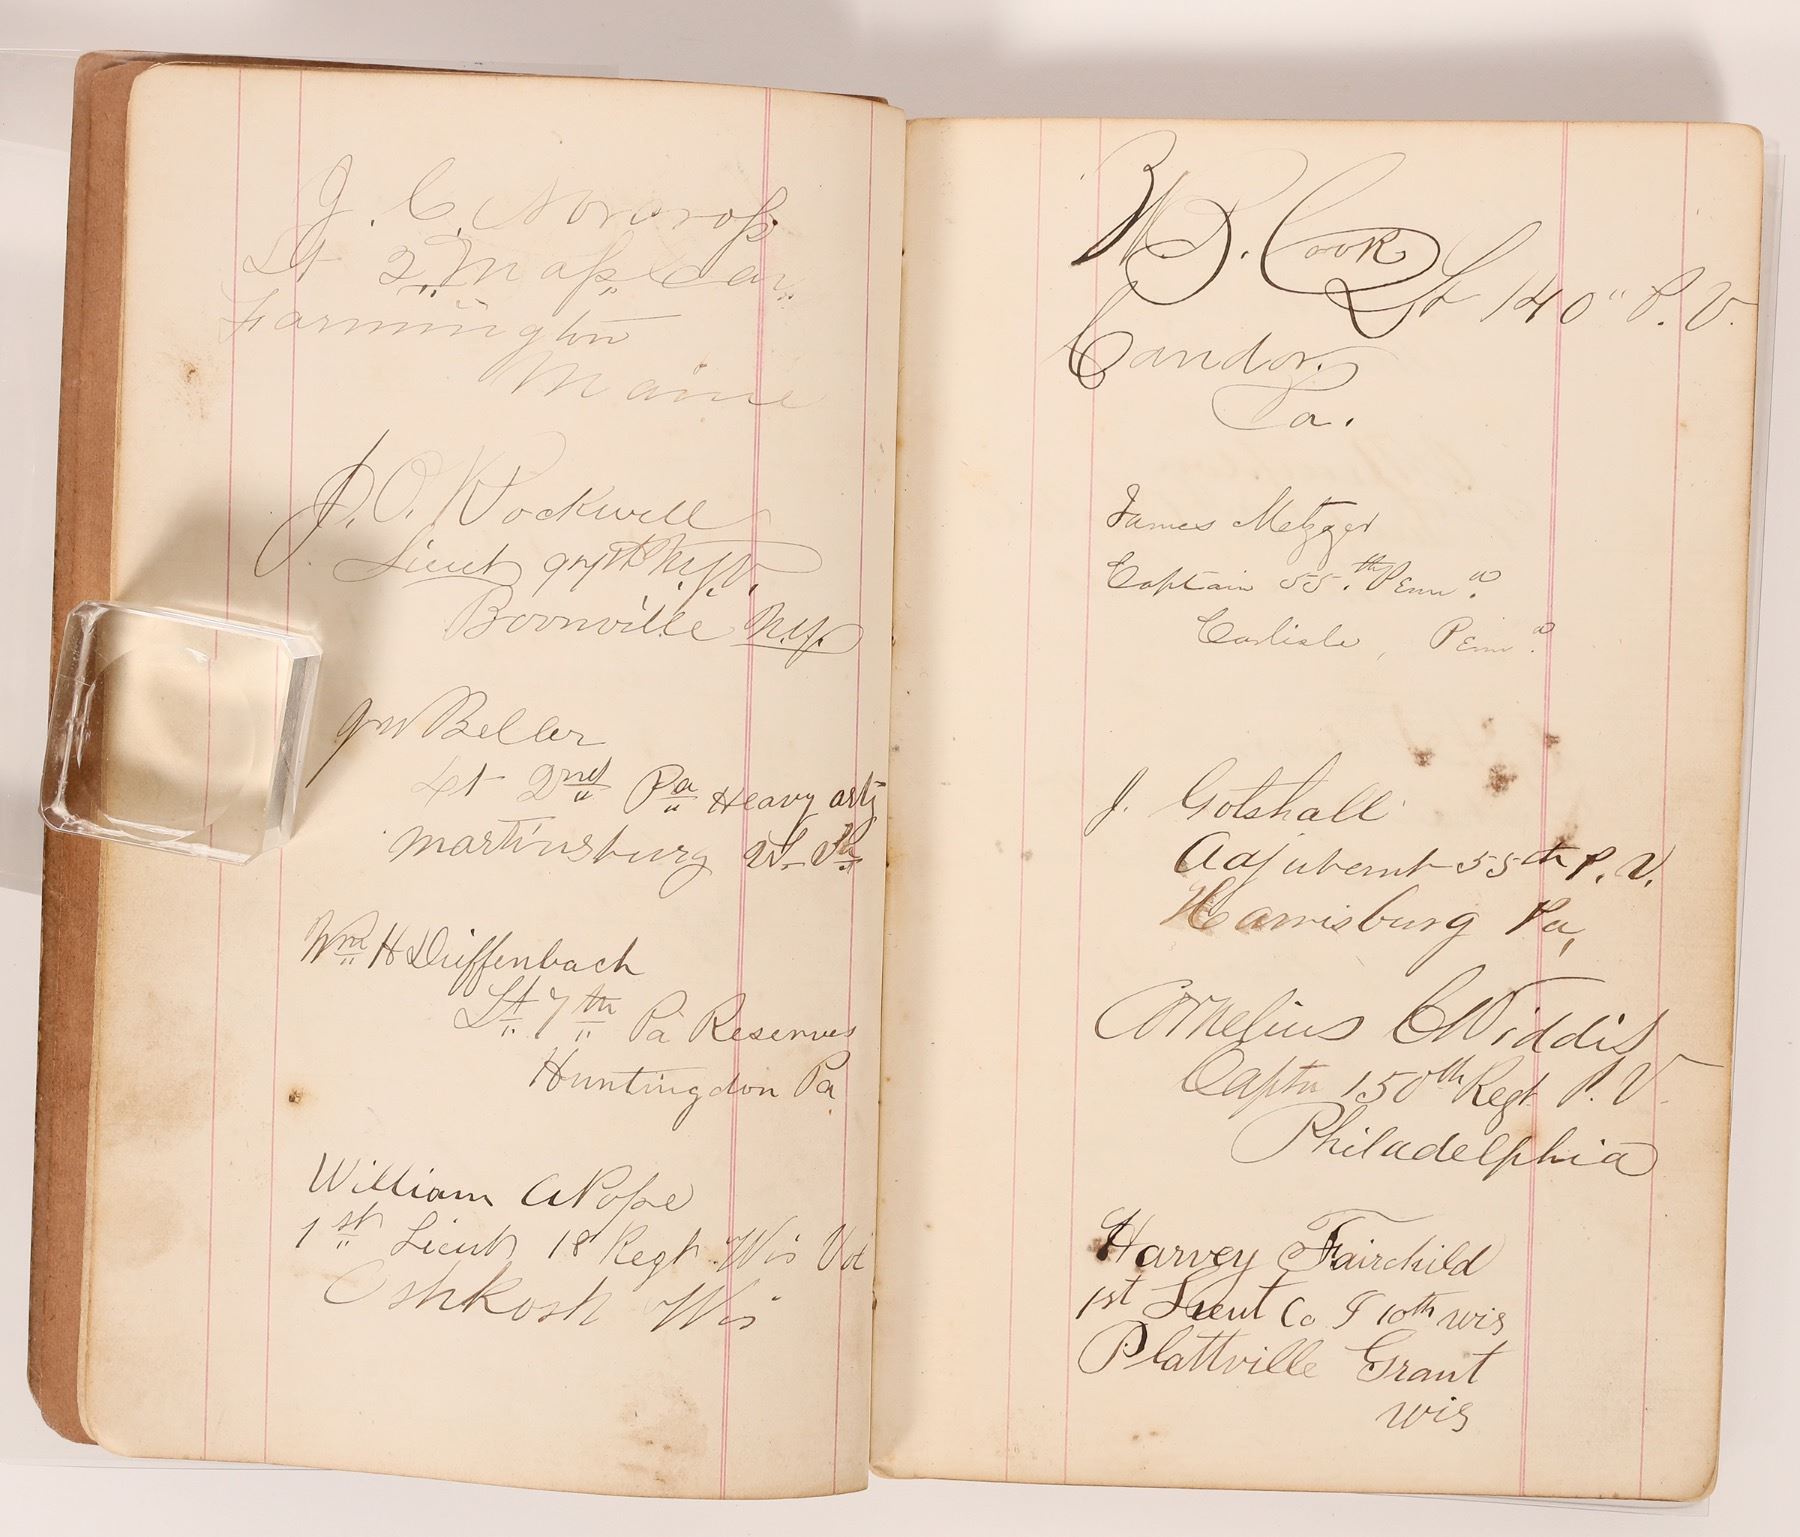 J. C. Norcross
Lt 2" Mass Cav
Farmington
Maine
J. O. Rockwell
Lieut 97th N.Y.V.
Boonville N.Y.
JW Beller
Lt 2nd Pa Heavy arty
Martinsburg
Wm H Dieffenbach
Lt 7th Pa Reserves
Huntingdon Pa
William A Pope
1st Lieut 18 Regt Wis Vol
Oshkosh Wis
W B. Cook
Lt 140" P. V.
Candor.
Pa.
James Metzger
Captain 55.th Penna.
Carlisle, Penna.
J. Gotshall
Adjutent 55th P. V.
Harrisburg Pa,
Cornelius C Widdis
Captn 150th Regt P. V.
Philadelphia
Harvey Fairchild
1st Lieut Co 10th wis
Plattville Grant
wis